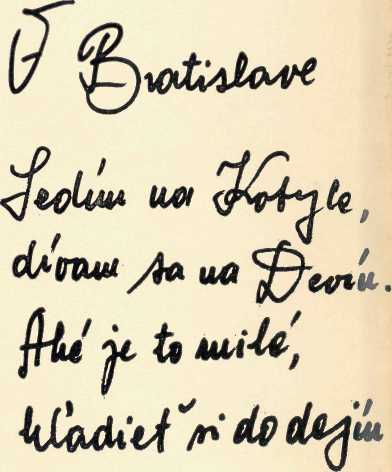 V Bratislave
Sedím na Kobyle,
dívam sa na Devín.
Aké je to milé,
hľadieť si do dejín